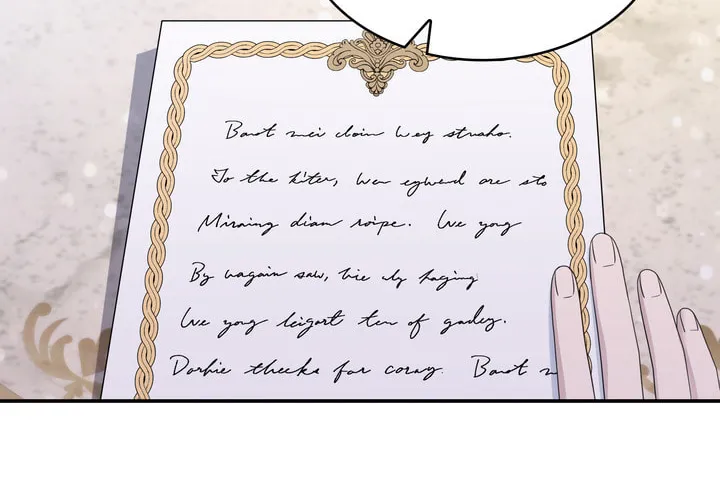 Baot mei cloin wey struaho.
To the kiter, wen egwend are sto
Miraing diam roipe. We yong
By uagain saw, hie ely haging
We yong leigart ten of gadey.
Dorhie thecks for coray. Baot